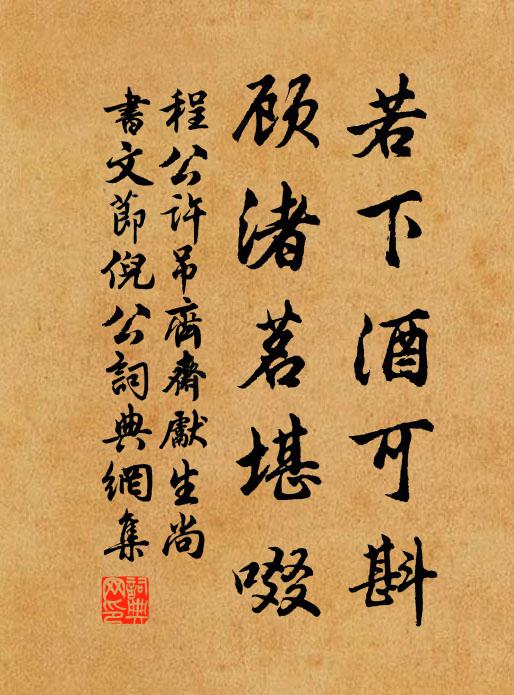 若下酒可斟
顾渚茗堪啜
程公许吊齊齋獻生尚
書文節倪公詞典網集
詞典网印